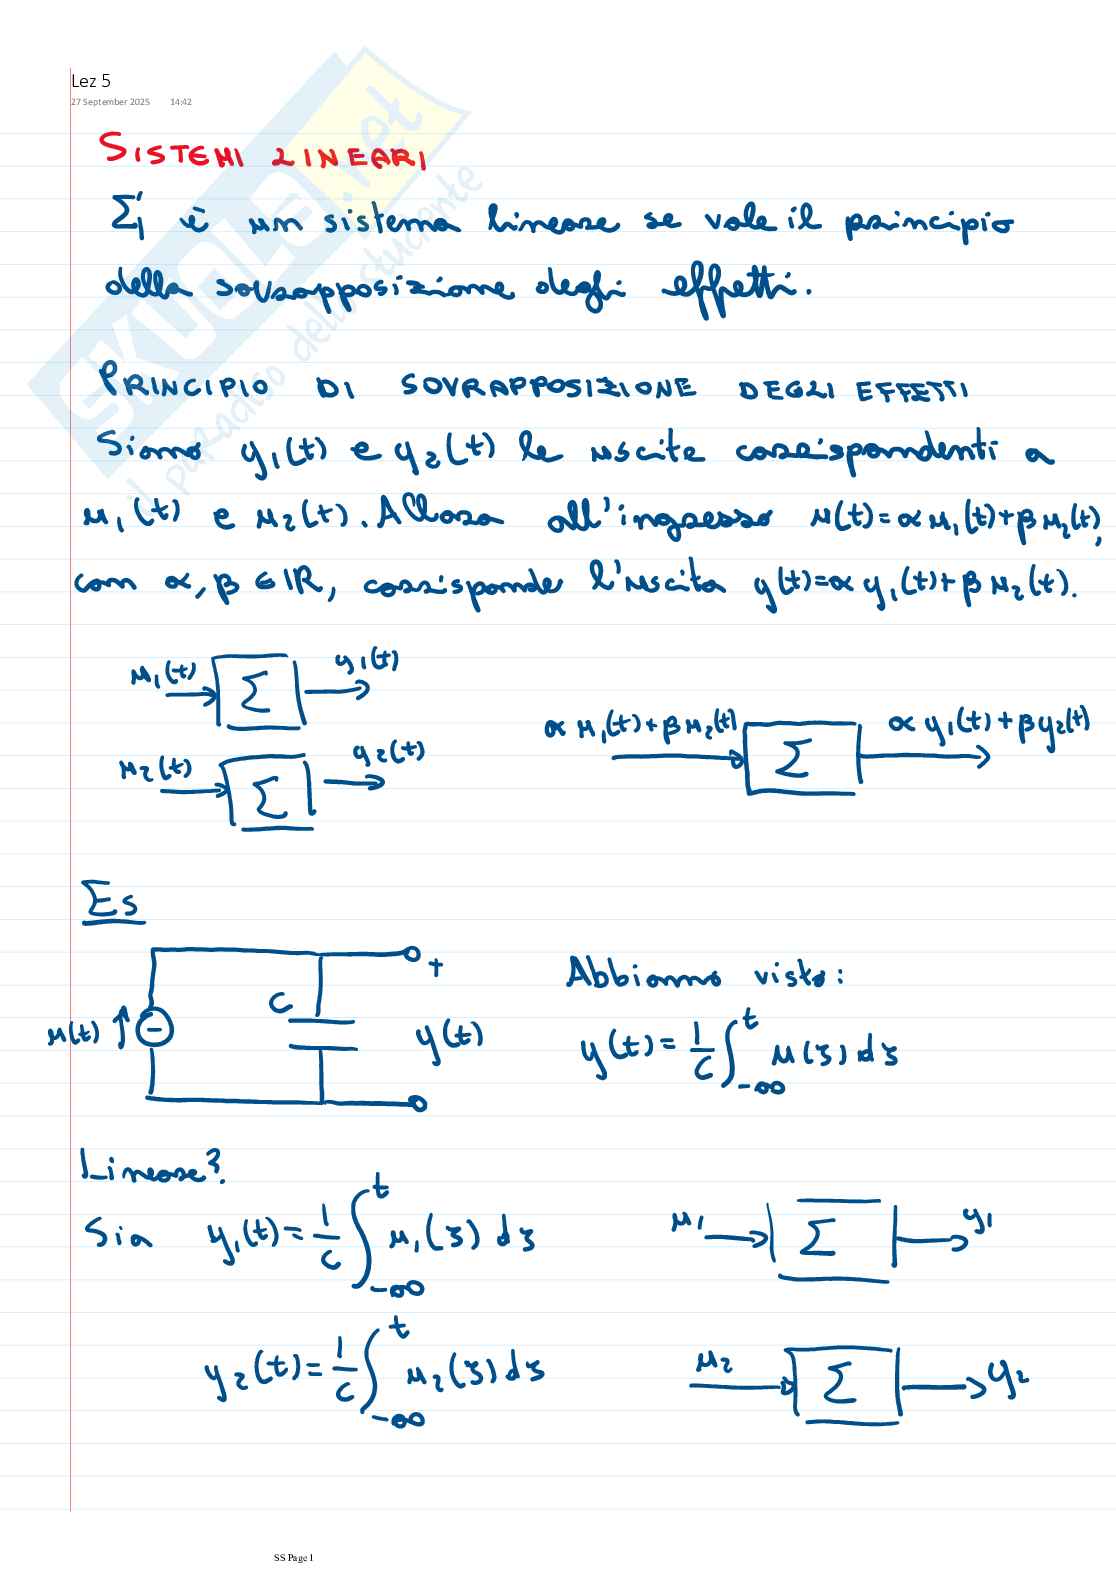 Lez 5
27 September 2025 14:42
SISTEMI LINEARI
Σ è un sistema lineare se vale il principio
della sovrapposizione degli effetti.
PRINCIPIO DI SOVRAPPOSIZIONE DEGLI EFFETTI
Siano y₁(t) e y₂(t) le uscite corrispondenti a
u₁(t) e u₂(t). Allora all'ingresso u(t)=αu₁(t)+βu₂(t),
con α, β ∈ ℝ, corrisponde l'uscita y(t)=αy₁(t)+βu₂(t).
u₁(t) Σ y₁(t)
αu₁(t)+βu₂(t) Σ αy₁(t)+βy₂(t)
u₂(t) Σ y₂(t)
Es
u(t) C + y(t)
Abbiamo visto:
y(t)=1/C ∫_{-∞}^{t} u(ζ)dζ
Lineare?
Sia y₁(t)=1/C ∫_{-∞}^{t} u₁(ζ)dζ
u₁ Σ y₁
y₂(t)=1/C ∫_{-∞}^{t} u₂(ζ)dζ
u₂ Σ y₂
SS Page 1
SKUOLA.net
il paradiso dello studente